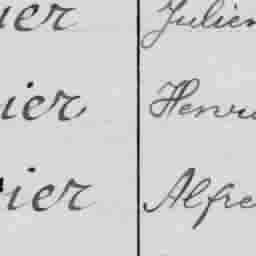 ier Julien
ier Henri
ier Alfre